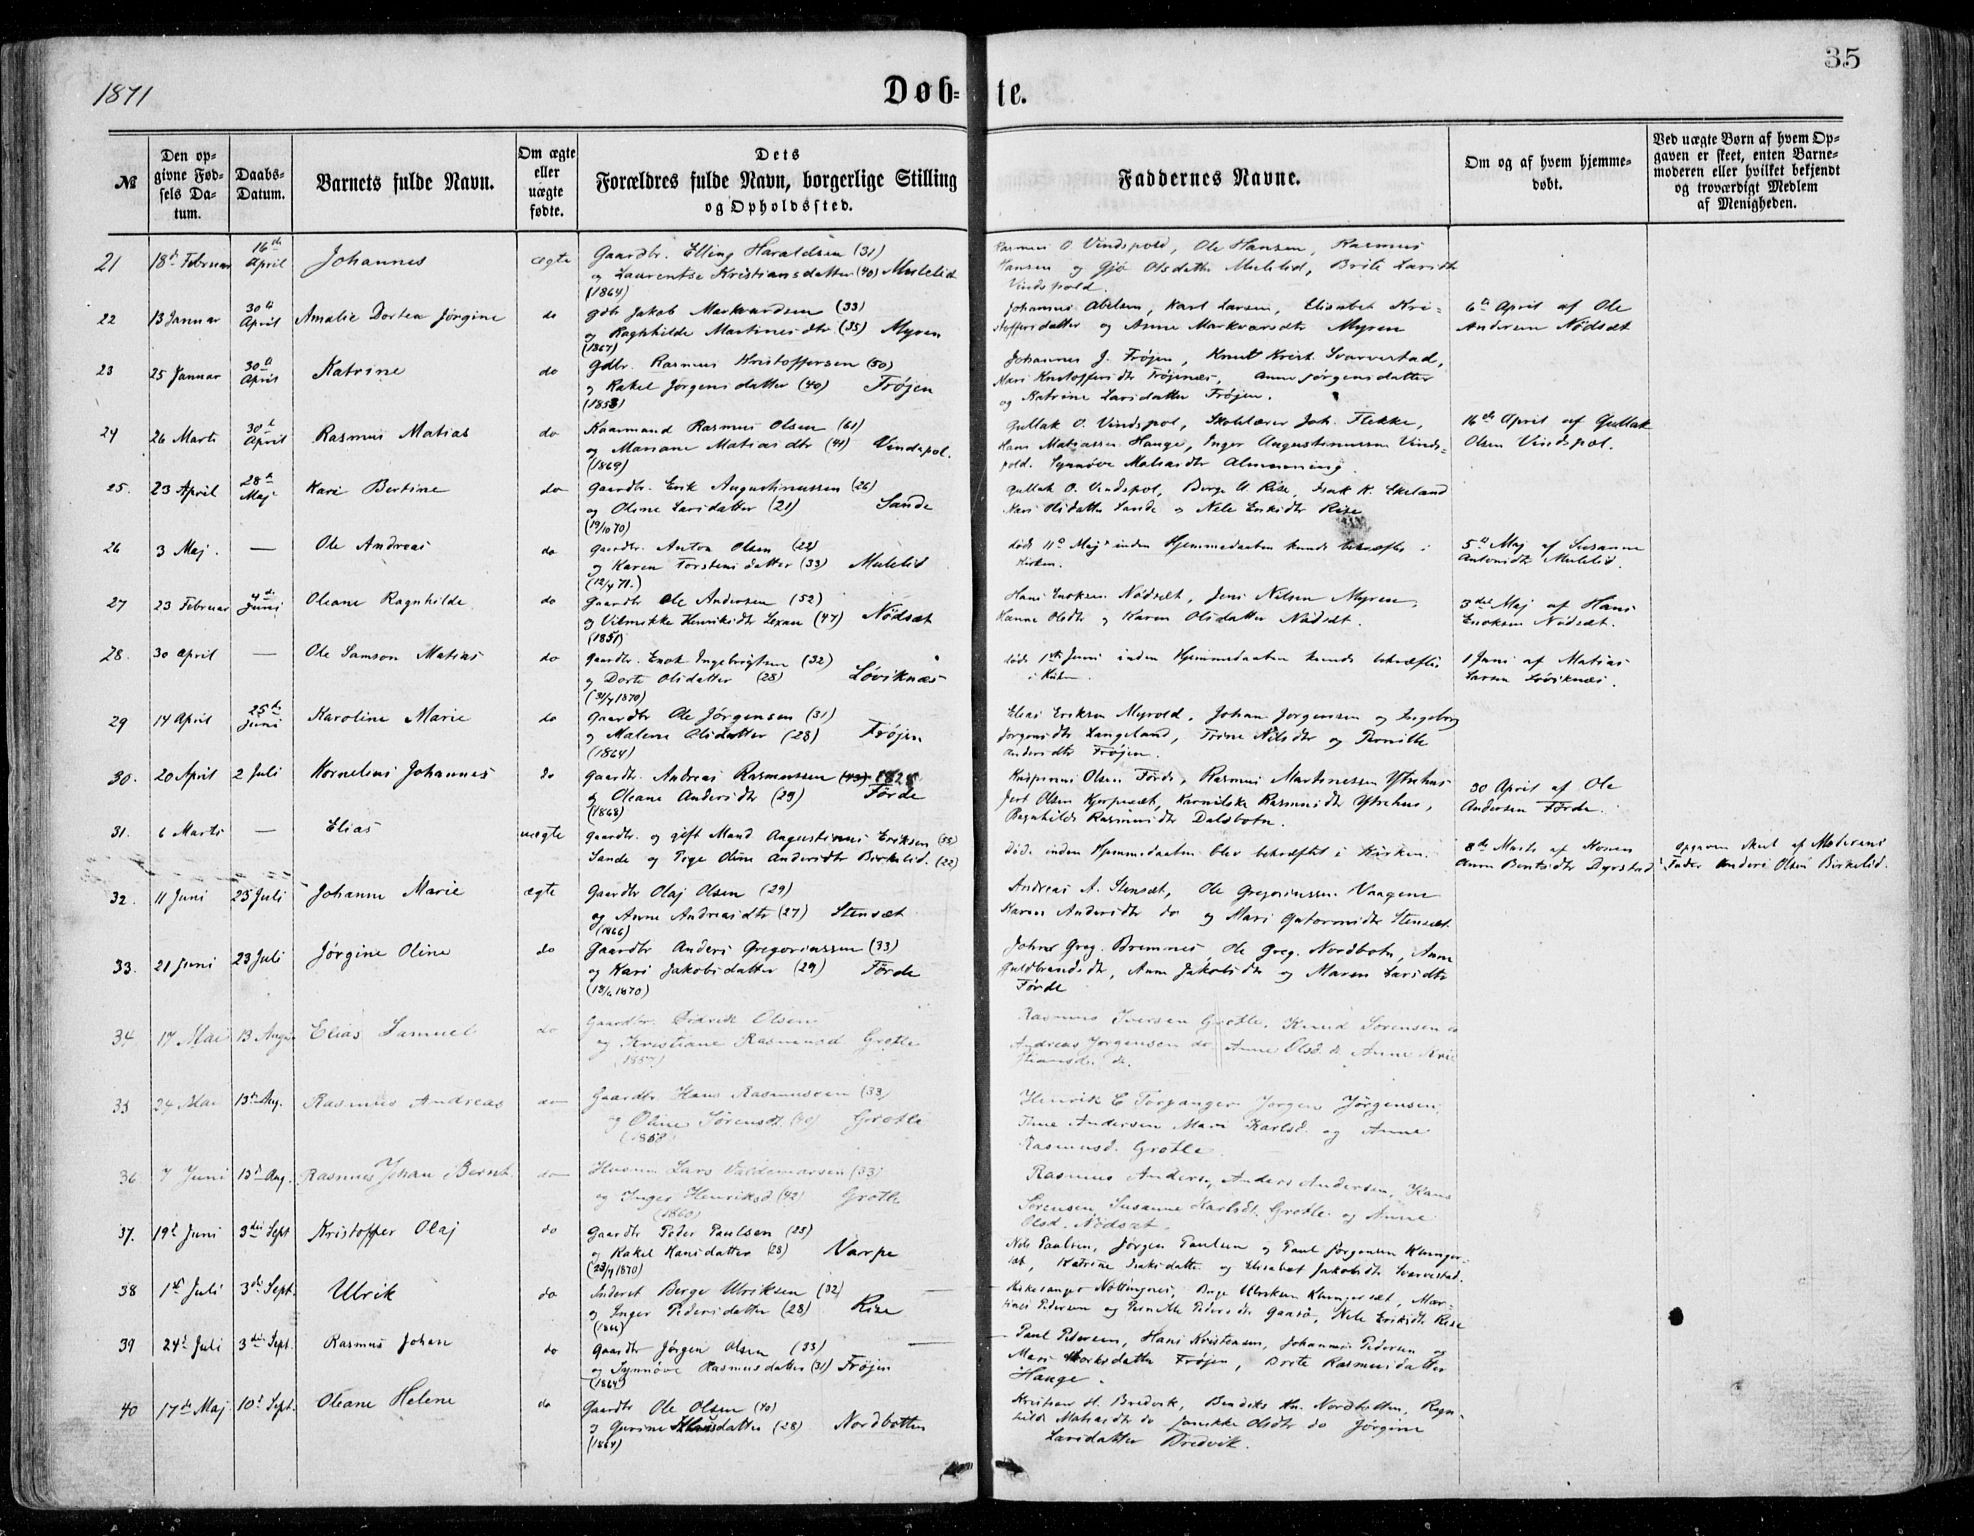 1871
Døb-
te.
35
№
Den op-
givne Fød-
sels Da-
tum.
Daabs-
Datum.
Barnets fulde Navn.
Om ægte
eller
uægte
fødte.
Dets
Forældres fulde Navn, borgerlige Stilling
og Opholdssted.
Faddernes Navne.
Om og af hvem hjemme-
døbt.
Ved uægte Børn af hvem Op-
gaven er skeet, enten Barne-
moderen eller hvilket bekjendt
og troværdigt Medlem
af Menigheden.
21 18de Februar 16de April Johannes ægte Gaardbr. Elling Haraldsen (31)
og Laurentse Kristiansdatter (40) Mulelid
(1864)
Rasmus O. Vindspold, Ole Hansen, Rasmus
Hansen og Gjø Olsdatter Mulelid, Brite Larsdtr
Vindspold.
22 13 Januar 30te April Amalie Dortea Jørgine do Gdbr Jakob Markvardsen (33)
og Ragnhilde Martinesdtr (35) Myren
(1867)
Johannes Abelsen, Karl Larsen, Elisabet Kri-
stoffersdatter og Anne Markvarsdtr Myren
6te April af Ole
Andersen Nødsæt
23 25 Januar 30te April Katrine do Gdbr. Rasmus Kristoffersen (50)
og Rakel Jørgensdatter (40) Frøjen
(1853)
Johannes J. Frøjen, Knut Krist. Svarvestad,
Mari Kristoffersdtr Frøjenæs, Anne Jørgensdatter
og Katrine Larsdatter Frøjen.
24 26 Marts 30te April Rasmus Matias do Kaarmand Rasmus Olsen (61)
og Mariane Matiasdtr (41) Vindspol.
(1869)
Gullak O. Vindspol, Skolelærer Joh. Flekke,
Hans Matiassen Hauge, Inger Augustinussen Vinds-
pold. Synnøve Matiasdtr Almenning.
16de April af Gullak
Olsen Vindspol.
25. 23 April 28de Maj Kari Bertine do Gaardbr. Erik Augustinussen (26)
og Oline Larsdatter (21) Sande
(19/10 70)
Gullak O. Vindspol, Berge U. Rise, Isak K. Ekeland
Mari Olsdatter Sande og Nele Eriksdtr Rise
26 3 Maj. — Ole Andreas do Gaardbr. Anton Olsen (22)
og Karen Torstensdatter (33) Mulelid
(12/4 71.)
død 11te Maj inden Hjemmedaaben kunde bekræftes i
Kirken.
5te Maj af Susanne
Antonsdtr Mulelid.
27 23 Februar 4de Juni Oleane Ragnhilde do Gaardbr Ole Andersen (52)
og Vilmikke Henriksdtr Lexau (47) Nødsæt
(1851)
Hans Enoksen Nødsæt, Jens Nilsen Myren,
Hanne Olsdtr og Karen Olsdatter Nødsæt.
3die Maj af Hans
Enoksen Nødsæt.
28. 30 April — Ole Samson Matias do Gaardbr. Enok Ingebrigtsen (32)
og Dorte Olsdatter (28) Løviknæs
(31/7 1870)
død 1ste Juni inden Hjemmedaaben kunde bekræftes
i Kirken.
1 Juni af Matias
Larsen Løviknæs.
29 14 April 25de Juni Karoline Marie do Gaardbr Ole Jørgensen (31)
og Malene Olsdatter (28) Frøjen
(1864)
Elias Eriksen Myrold, Johan Jørgensen og Ingeborg
Jørgensdtr Langeland, Trine Nilsdtr og Pernille
Andersdtr Frøjen.
30. 20 April 2 Juli Kornelius Johannes do Gaardbr. Andreas Rasmussen (43) 1828
og Oleane Andersdtr (29) Førde
(1868)
Olsen Førde, Rasmus Martinessen Ytrehus
Olsen, Rasmusdtr Ytrehus,
Ragnhilde Rasmusdtr Dalsbotn.
30 April af Ole
Andersen Førde.
31. 6 Marts — Elias uægte Gaardbr. og gift Mand Augustinus Eriksen (55)
Sande og Pige Oline Andersdtr Birkelid. (22)
Død inden Hjemmedaaben blev bekræftet i Kirken.
8de Marts af Konen
Anne Bentsdtr Dyrstad
Opgaven skeet af Moderens
Fader Anders Olsen Birkelid.
32. 11 Juni 23 Juli Johanne Marie ægte Gaardbr Olaj Olsen (29)
og Anne Andreasdtr (27) Stensæt
(1866)
Andreas A. Stensæt, Ole Gregoriussen Vaagene
Karen Andersdtr do og Mari Gutormsdtr Stensæt
33. 21 Juni 23 Juli Jørgine Oline do Gaardbr Anders Gregoriussen (33)
og Kari Jakobsdatter (29) Førde
(18/6 1870)
Johns Greg. Bremnes, Ole Greg. Nordbotn, Anne
Guldbrandsdtr, Anne Jakobsdtr og Maren Larsdtr
Førde
34 17 Mai 13 Aug Elias Samuel do Gaardbr. Didrik Olsen
og Kristiane Rasmusd Grotle
(1857)
Rasmus Iversen Grotle. Knud Sørensen do
Andreas Jørgensen do Anne Olsd. do Anne Kri
stiansd. do.
35 24 Mai 13de Aug. Rasmus Andreas do Gaardbr. Hans Rasmussen (33)
og Oline Sørensd. (40) Grotle
Henrik C Torvanger Jørgen Jørgensen,
Andersen Mari Karlsd. og Anne
Rasmusd. Grotle.
36 7 Juni 13de Aug. Rasmus Johan Bernt do Husm Lars Valdemarsen (33)
og Inger Henriksd (42) Grotle
(1860)
Rasmus Anders., Anders Andersen, Hans
Sørensen, Susanne Karlsd. Grotle og Anne
Olsd. Nødsæt.
37. 19de Juni 3die Sept Kristoffer Olaj do Gaardbr Peder Paulsen (25)
og Rakel Hansdatter (28) Varpe
(23/7 1870)
Nils Paulsen, Jørgen Paulsen og Paul Jørgensen Klunger-
sæt, Katrine Isaksdatter og Elisabet Jakobsdtr Svarvestad.
38 1ste Juli 3die Sept. Ulrik do Inderst Berge Ulriksen (32)
og Inger Pedersdatter (28) Rise
Kirkesanger Nøttingnes, Berge Ulriksen Klungersæt, Mar-
tines Pedersen og Pernille Pedersdtr Gaasø, Nele Eriksdtr Rise
39 24de Juli 3die Sept. Rasmus Johan do Gaardbr Jørgen Olsen (33)
og Synnøve Rasmusdatter (31) Frøjen
(1864)
Paul Pedersen, Hans Kristensen, Johannes Pedersen og
Mari Frøjen, Brite Rasmusdatter
Hauge.
40 17de Maj 10de Sept. Oleane Helene do Gaardbr Ole Olsen (40)
og Gurine Hansdatter (28) Nordbotten
(1864)
Kristian H. Bredvik, Bendiks An. Nordbotten, Ragn-
hilde Matiasdtr do Olsdtr do Jørgine
Larsdatter Bredvik.